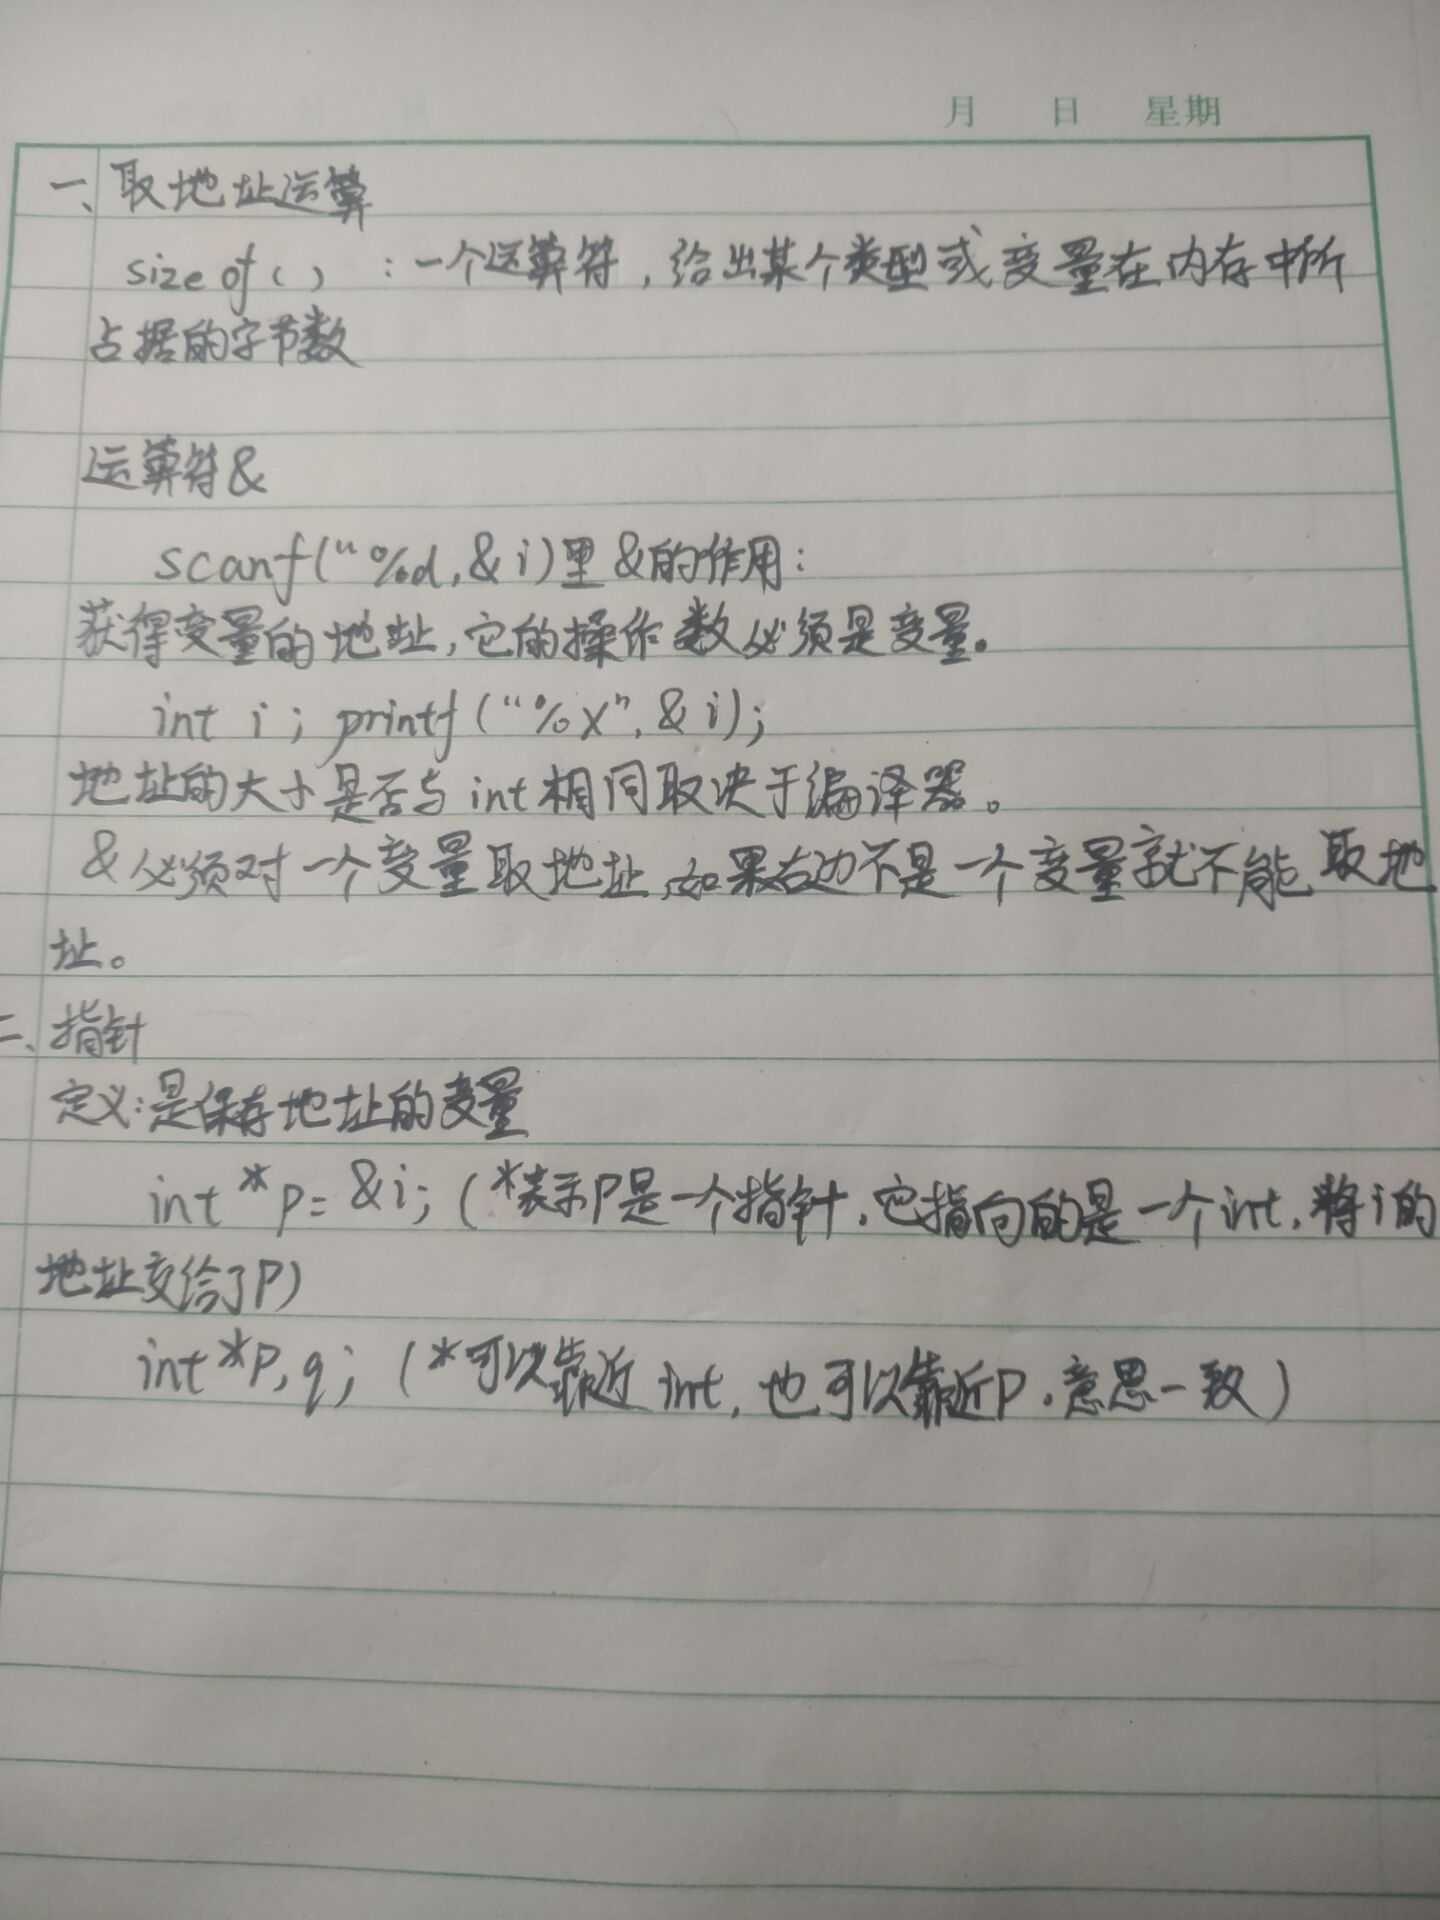 月 日 星期
一、取地址运算
sizeof() :一个运算符，给出某个类型或变量在内存中所
占据的字节数
运算符&
scanf("%d,&i)里&的作用:
获得变量的地址,它的操作数必须是变量。
int i; printf("%x",&i);
地址的大小是否与int相同取决于编译器。
&必须对一个变量取地址,如果右边不是一个变量就不能取地
址。
二、指针
定义:是保存地址的变量
int *p=&i; (*表示P是一个指针,它指向的是一个int,将i的
地址交给了P)
int*P,q; (*可以靠近int,也可以靠近P,意思一致)